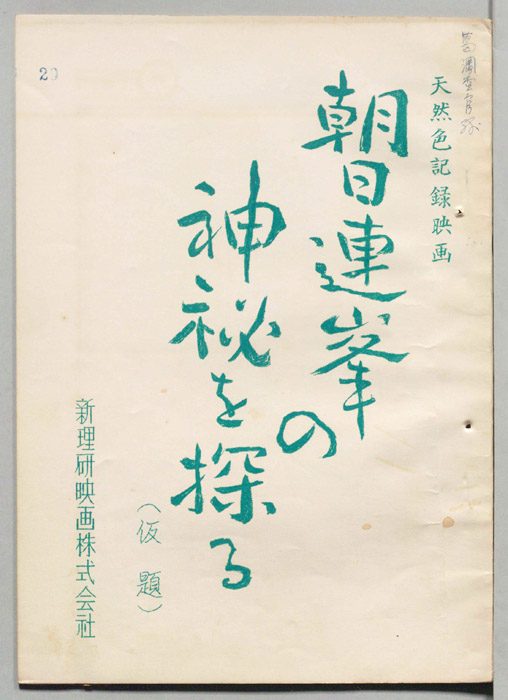 天然色記録映画
朝日連峯の
神祕を探る
（仮題）
新理研映画株式会社
20